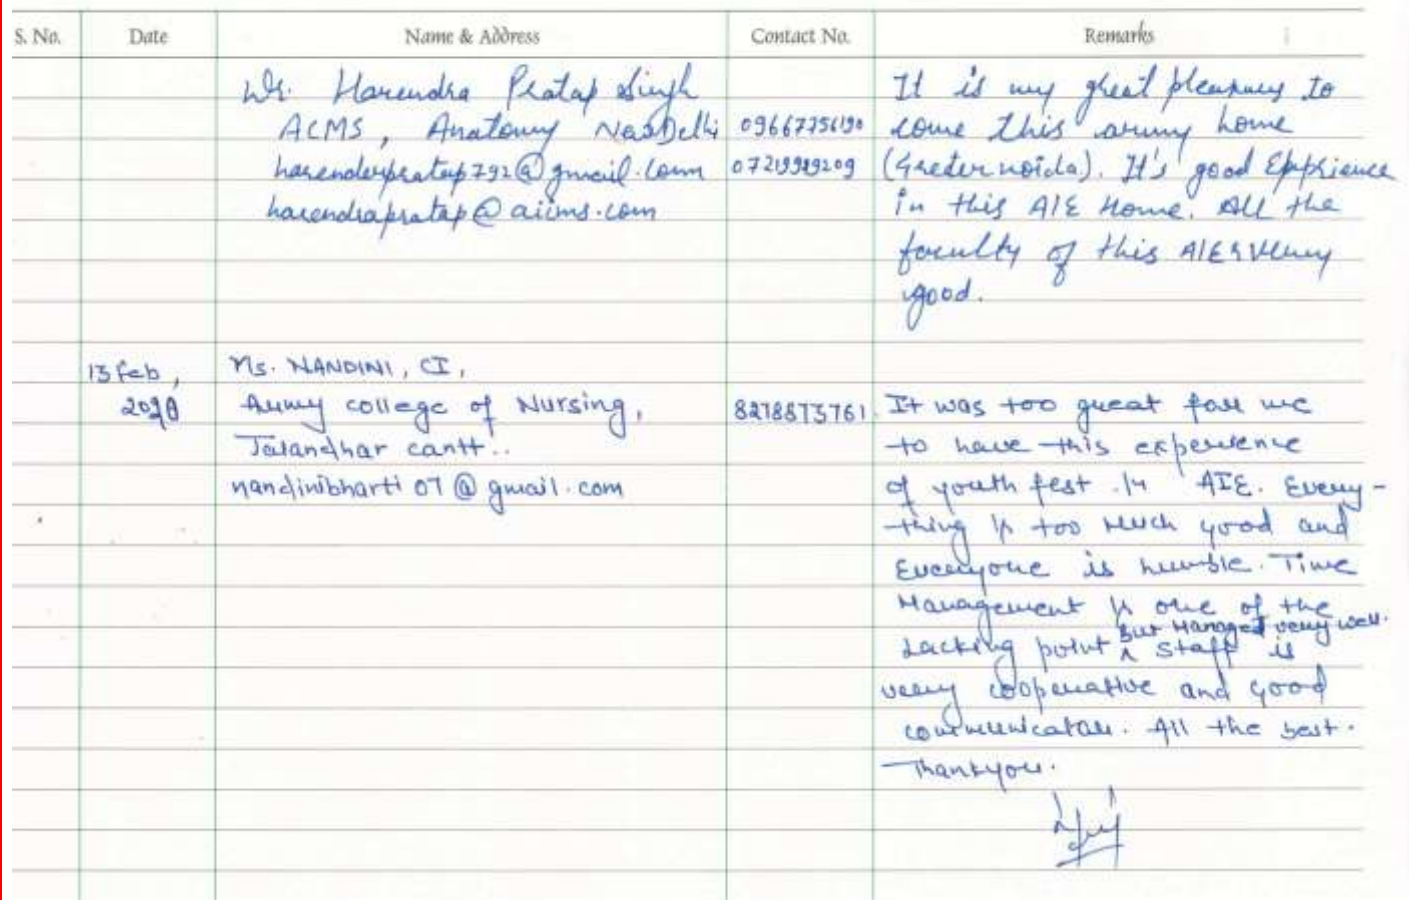 S. No. Date Name & Address Contact No. Remarks
Dr. Harendra Pratap Singh
ACMS, Anatomy New Delhi
harenderpratap792@gmail.com
harendrapratap@aiims.com
09667756190
07219989209
It is my great pleasurey to
come this army home
(Greter noida). It's good Expprience
in this AIE Home. All the
faculty of this AIE
good.
13 Feb,
Ms. NANDINI, CI,
Army college of Nursing,
Jalandhar cantt..
nandinibharti 07 @ gmail.com
It was too great for me
to have this experience
of youth fest in AIE. Every-
thing is too Much good and
Everyone is humble. Time
Management is one of the
Lacking point But Managed very well. Staff is
very cooperative and good
communicator. All the best.
Thankyou.